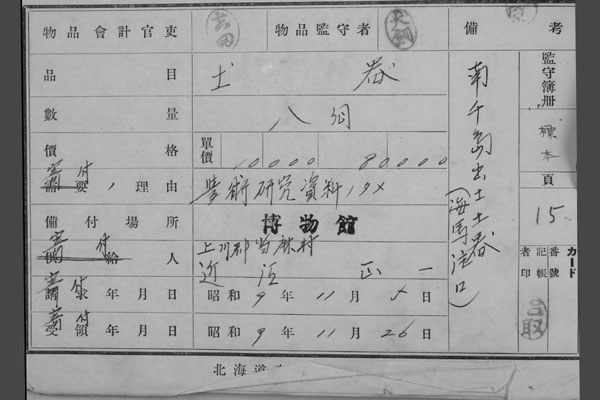 物品會計官吏 吉田 物品監守者 犬飼
品目 土器
數量 八個
價格 單價 10000 80000
寄付
需要ノ理由 學術研究資料ノタメ
備付場所 博物館
寄付
供給人 上川郡当麻村
近江正一
寄付
請求年月日 昭和9年11月 日
寄付
受領年月日 昭和9年11月26日
北海道
備考
南千島出土土器
(海馬 口)
監守簿冊 標本
頁 15
カード
番號
記帳者印